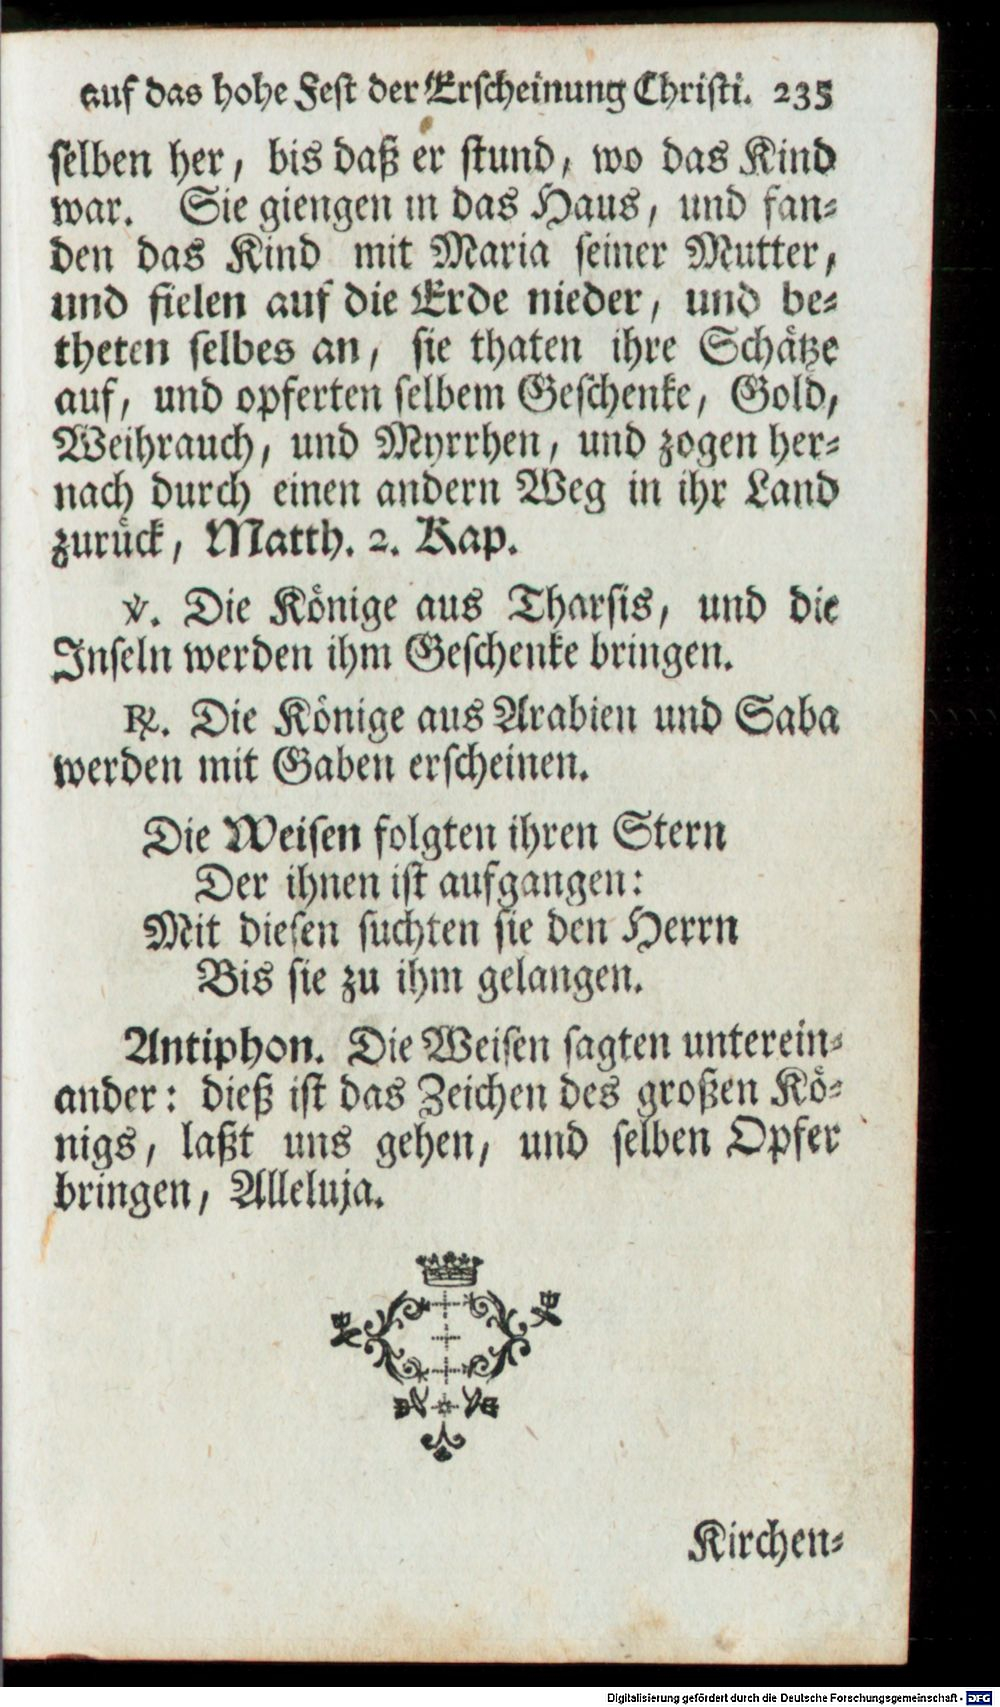 auf das hohe Fest der Erscheinung Christi. 235
selben her, bis daß er stund, wo das Kind
war. Sie giengen in das Haus, und fan-
den das Kind mit Maria seiner Mutter,
und fielen auf die Erde nieder, und be-
theten selbes an, sie thaten ihre Schätze
auf, und opferten selbem Geschenke, Gold,
Weihrauch, und Myrrhen, und zogen her-
nach durch einen andern Weg in ihr Land
zurück, Matth. 2. Kap.
℣. Die Könige aus Tharsis, und die
Inseln werden ihm Geschenke bringen.
℟. Die Könige aus Arabien und Saba
werden mit Gaben erscheinen.
Die Weisen folgten ihren Stern
Der ihnen ist aufgangen:
Mit diesen suchten sie den Herrn
Bis sie zu ihm gelangen.
Antiphon. Die Weisen sagten unterein-
ander: dieß ist das Zeichen des großen Kö-
nigs, laßt uns gehen, und selben Opfer
bringen, Alleluja.
Kirchen-
Digitalisierung gefördert durch die Deutsche Forschungsgemeinschaft - DFG